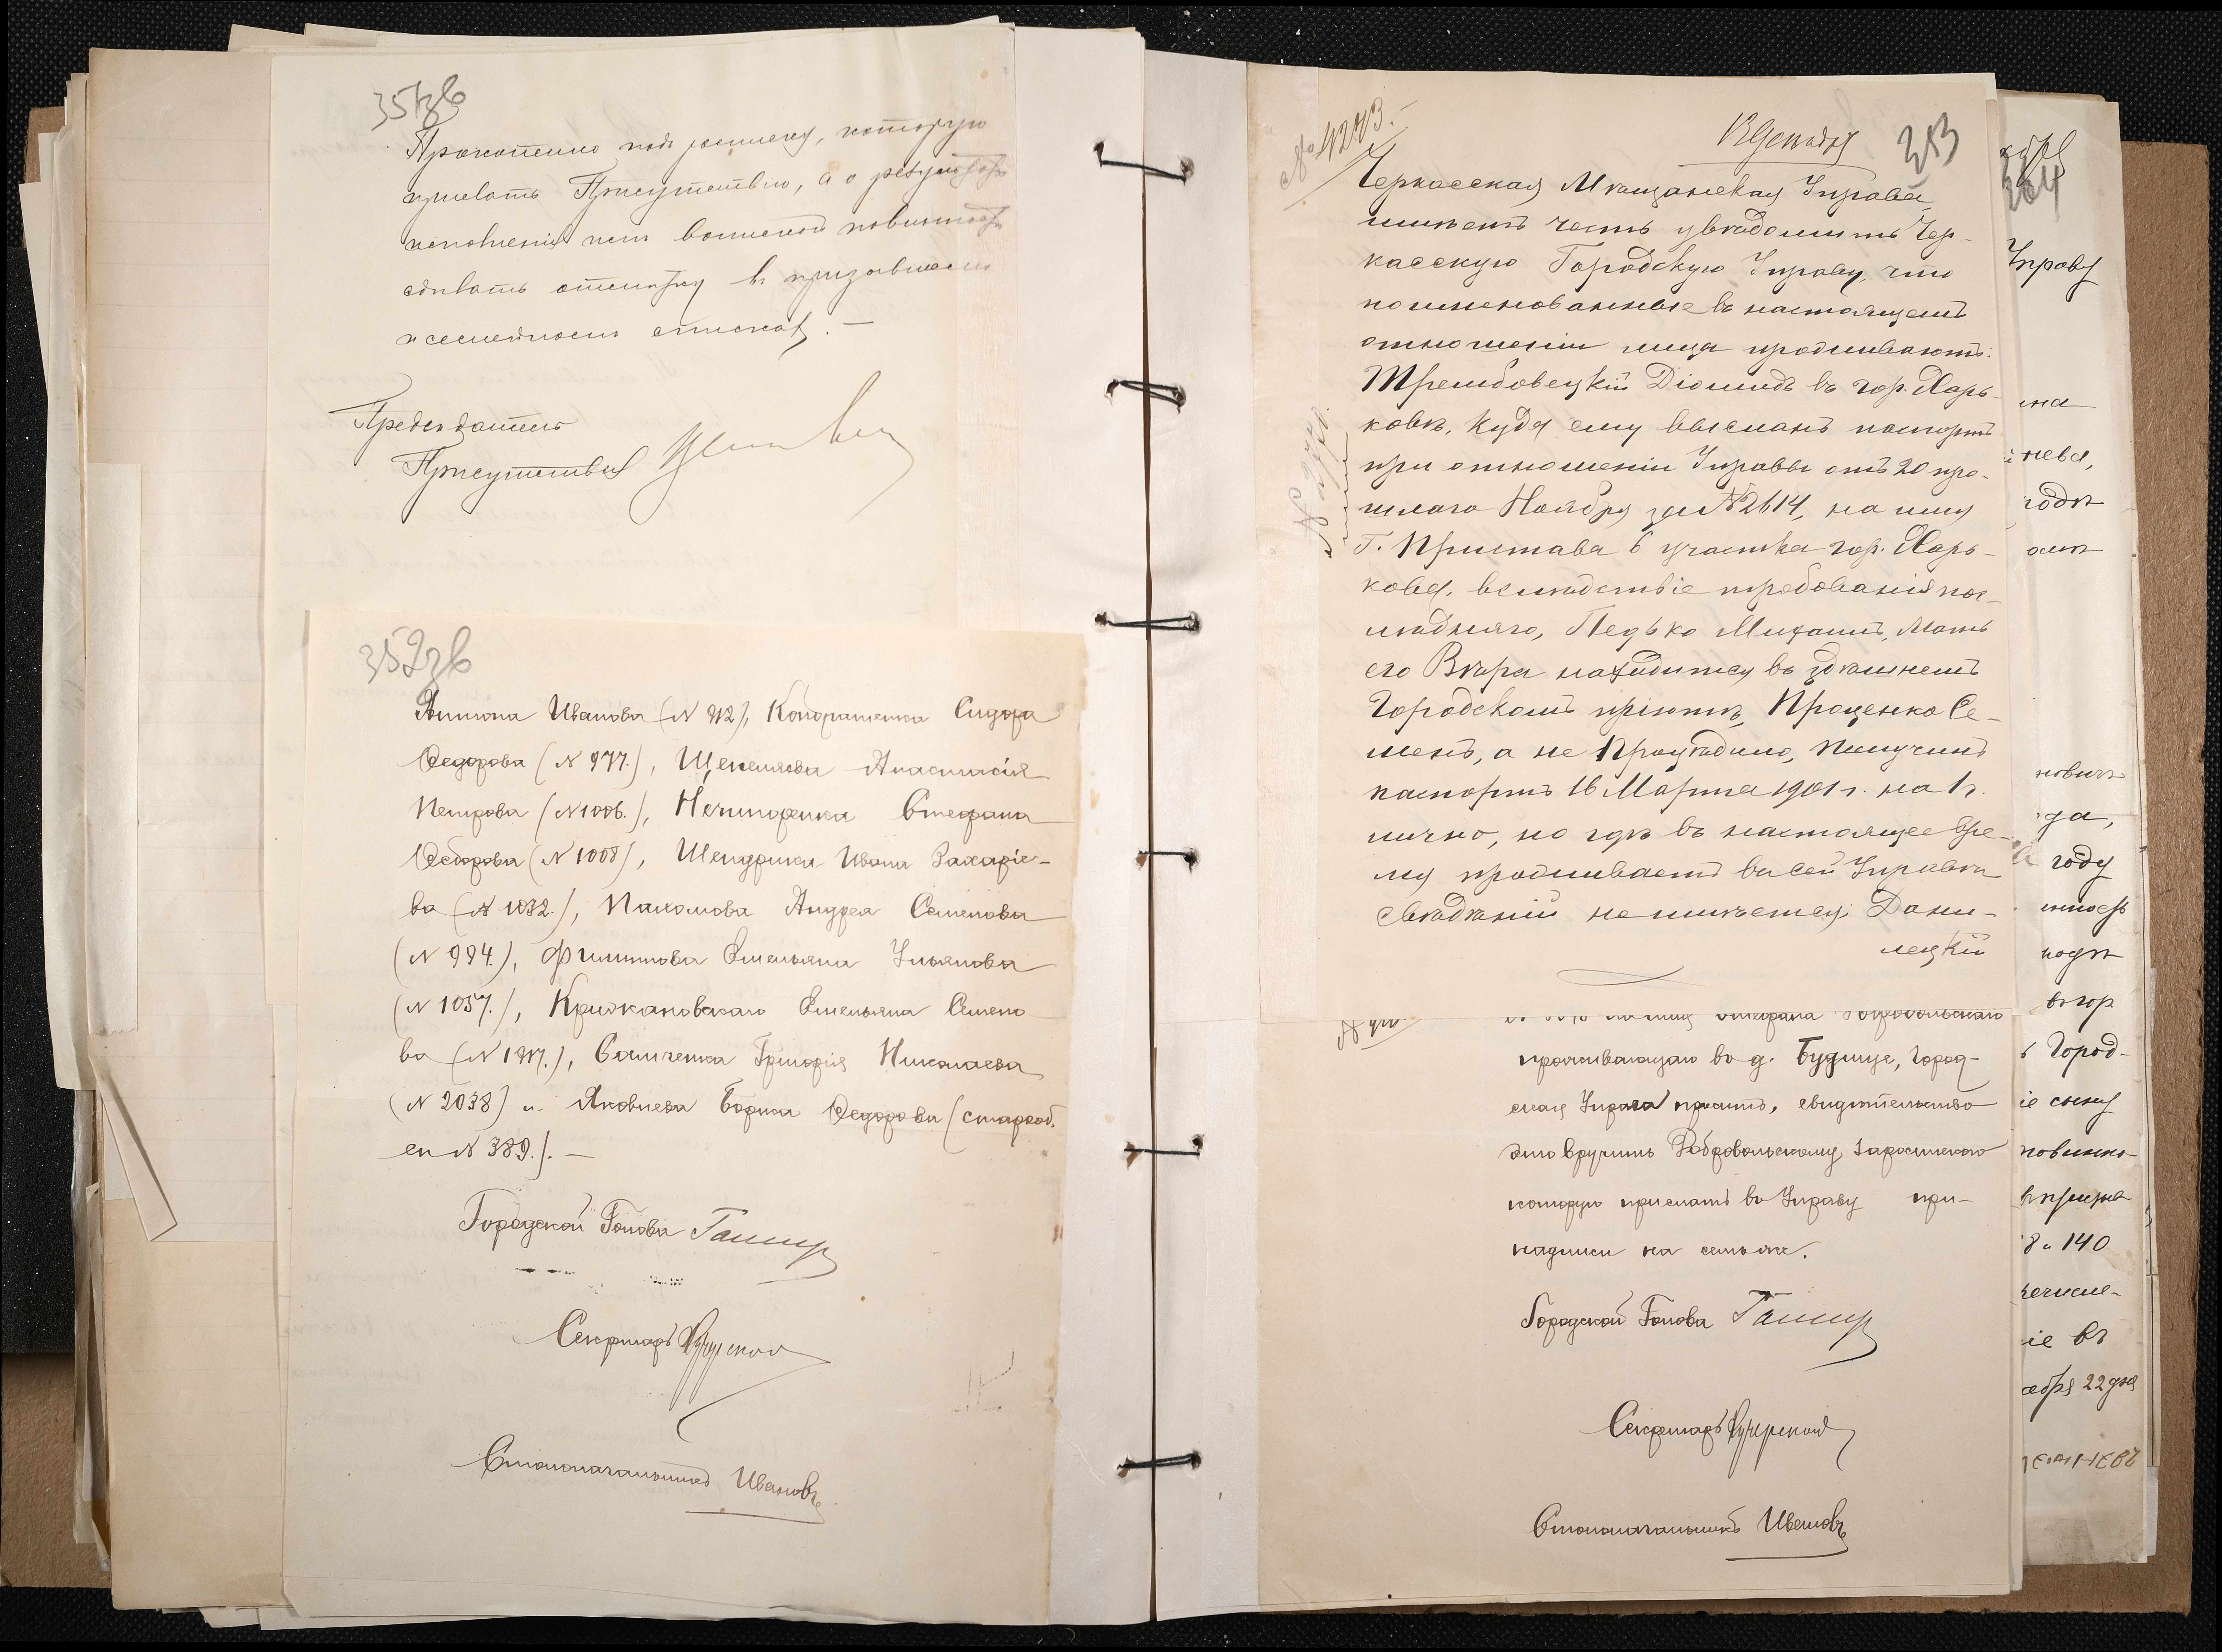 351зв
Прокопенко подъ росписку, которую
прислать Присутствію, а о результатѣ
исполненія имъ воинской повинности
сдѣлать отмѣтку въ призывномъ
и семейномъ спискахъ. —
Предсѣдатель
Присутствія
352зв
Антона Иванова (№ 912), Кондратенка Сидора
Федорова (№ 977.), Щепеляева Анастасія
Петрова (№ 1006.), Нечипоренка Стефана
Федорова (№ 1008), Шендрика Ивана Захаріе-
ва (№ 1032.), Пахомова Андрея Семенова
(№ 994.), Филиппова Емельяна Ульянова
(№ 1057.), Крижановскаго Емельяна Семено-
ва (№ 1917.), Самченка Григорія Николаева
(№ 2038) и Яковлева Бориса Федорова (старооб.
сп № 389.). —
Городской Голова
Секретарь
Столоначальникъ Ивановъ
№ 4243.
12 Декабря
353
Черкасская Мѣщанская Управа
имѣетъ честь увѣдомить Чер-
касскую Городскую Управу, что
поименованные въ настоящемъ
отношеніи лица проживаютъ:
Трембовецкій Діомидъ въ гор. Харь-
ковѣ, куда ему высланъ паспортъ
при отношеніи Управы отъ 20 про-
шлаго Ноября за № 2614, на имя
Г. Пристава 6 участка гор. Харь-
кова, вслѣдствіе требованія пос-
лѣдняго, Педько Михаилъ, Мать
его Вѣра находится въ здѣшнемъ
Городскомъ пріютѣ, Проценко Се-
менъ, а не , получилъ
паспортъ 16 Марта 1901 г. на 1 г.
лично, но гдѣ въ настоящее вре-
мя проживаетъ въ сей Управѣ
свѣдѣній не имѣется. Дани-
лецкій
Стефана Добровольскаго
проживающаго въ д. Будище, Город-
ская Управа проситъ, свидѣтельство
это вручить Добровольскому за роспискою
которую прислать въ Управу при
надписи на семъ же.
Городской Голова
Секретарь
Столоначальникъ Ивановъ
354
Управу
нева,
годѣ
новичъ
да,
году
подъ
въ гор
ъ Город-
іе сыну
повинно-
8 и 140
іе въ
абря 22 дня